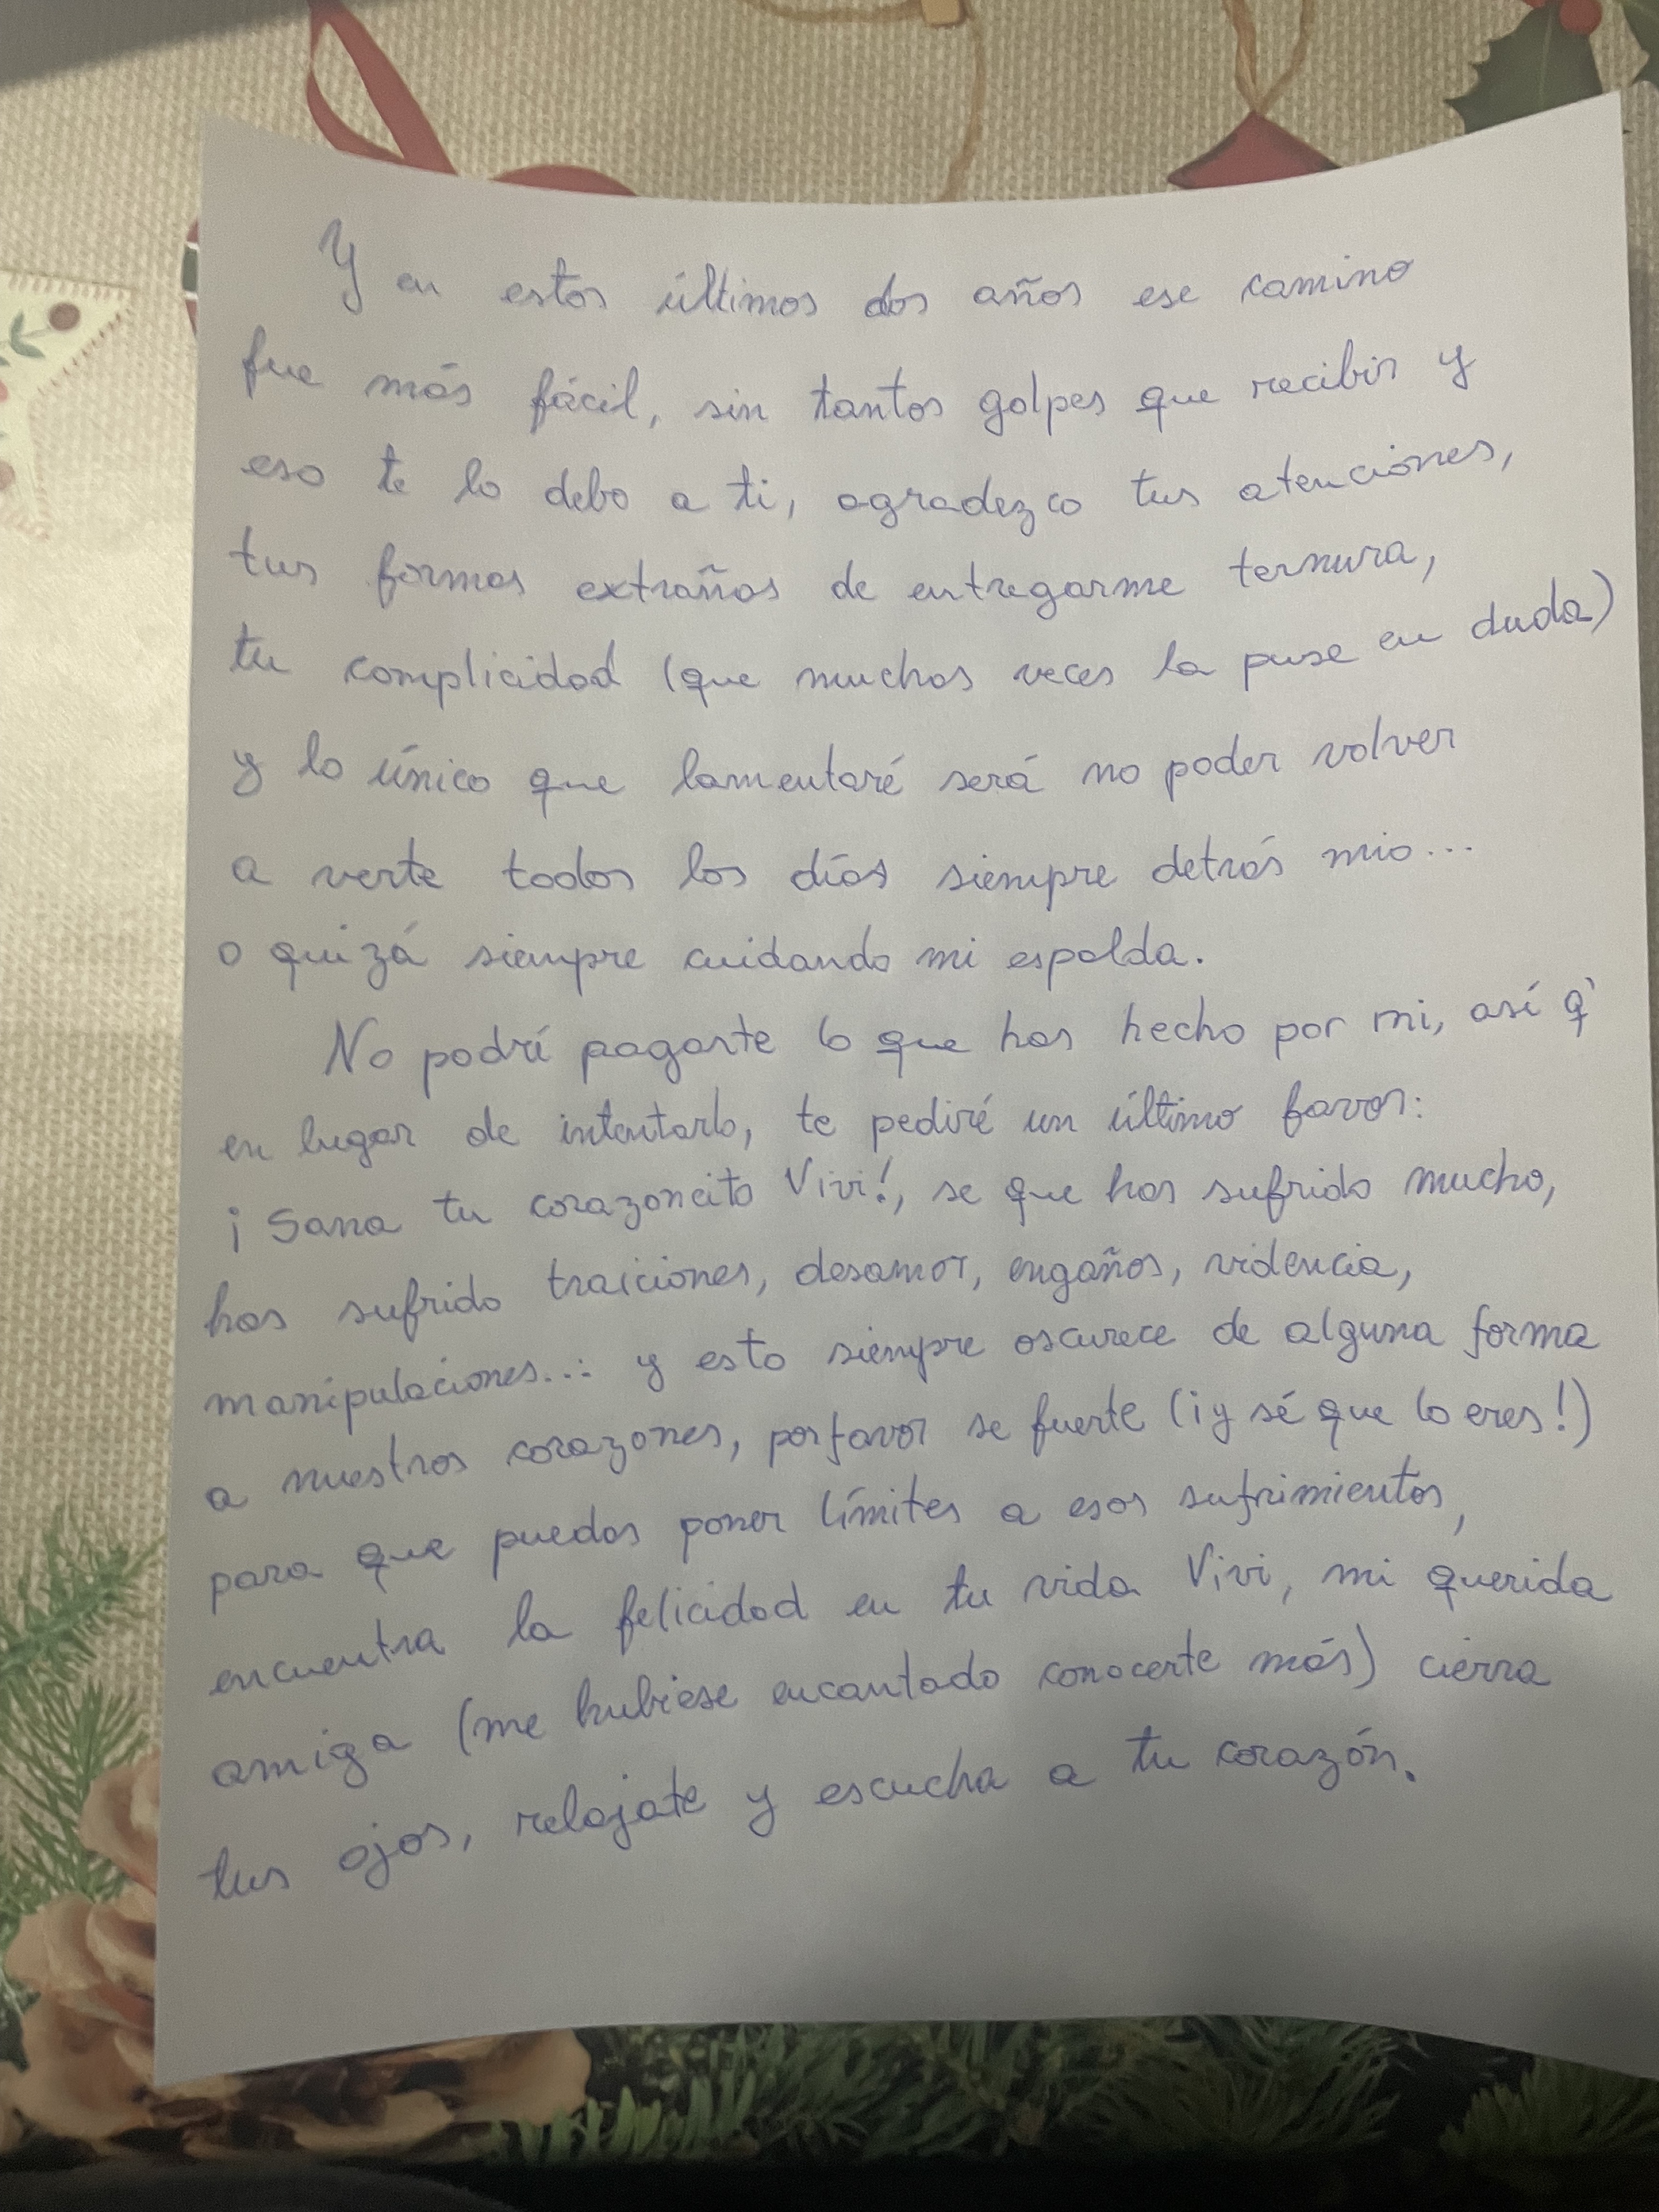 Y en estos últimos dos años ese camino
fue más fácil, sin tantos golpes que recibir y
eso te lo debo a ti, agradezco tus atenciones,
tus formas extrañas de entregarme ternura,
tu complicidad (que muchas veces la puse en duda)
y lo único que lamentaré será no poder volver
a verte todos los días siempre detrás mio...
o quizá siempre cuidando mi espalda.
No podré pagarte lo que has hecho por mi, así q'
en lugar de intentarlo, te pediré un último favor:
¡Sana tu corazoncito Vivi!, se que has sufrido mucho,
has sufrido traiciones, desamor, engaños, violencia,
manipulaciones... y esto siempre oscurece de alguna forma
a nuestros corazones, porfavor se fuerte (¡y sé que lo eres!)
para que puedas poner límites a esos sufrimientos,
encuentra la felicidad en tu vida Vivi, mi querida
amiga (me hubiese encantado conocerte más) cierra
tus ojos, relajate y escucha a tu corazón.